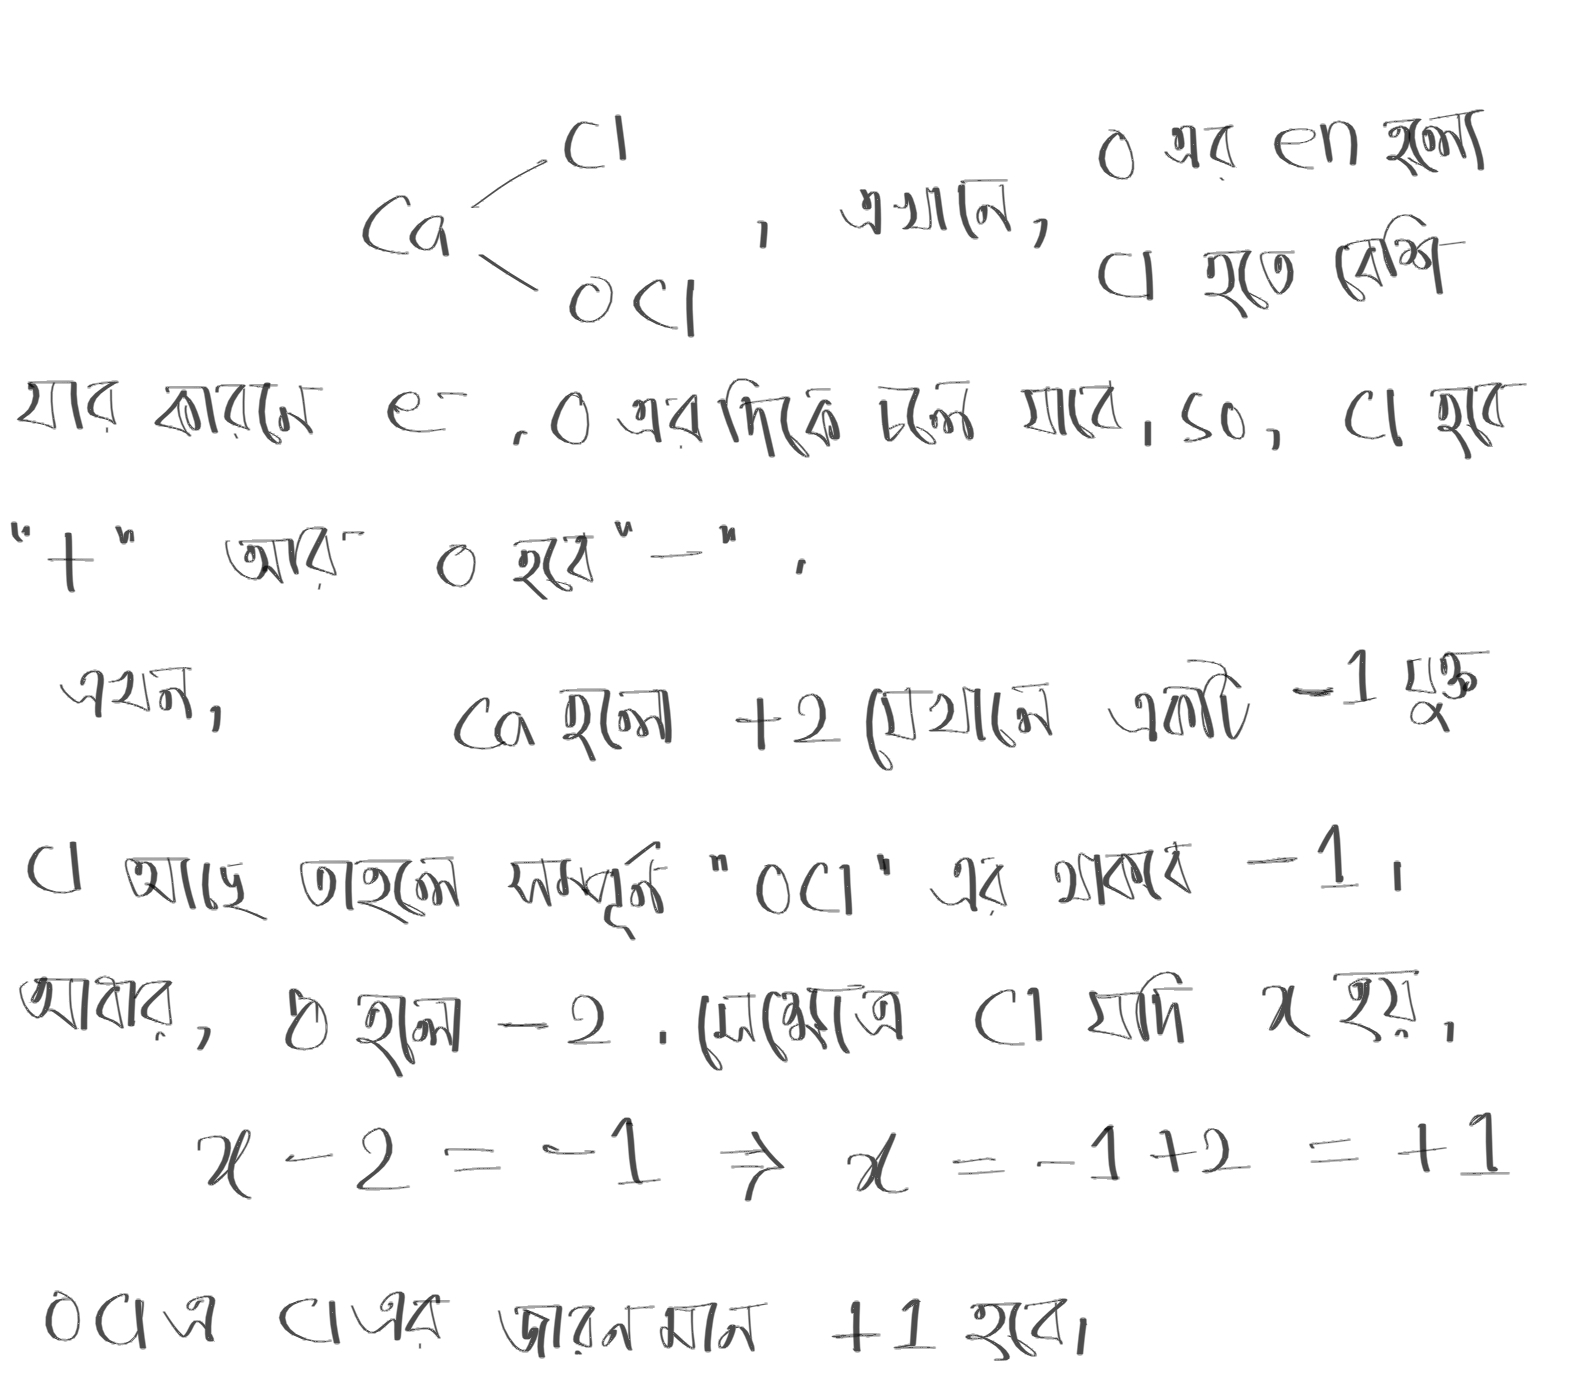 Cl
Ca , এখানে,
OCl
O এর en হলো
Cl হতে বেশি
যার কারনে e⁻ , O এর দিকে চলে যাবে, so, Cl হবে
"+" আর O হবে "−" ,
এখন, Ca হলো +2 যেখানে একটি -1 যুক্ত
Cl আছে তাহলে সম্পূর্ন "OCl" এর থাকবে -1,
আবার, O হলো -2. সেক্ষেত্রে Cl যদি x হয়,
x - 2 = -1 ⇒ x = -1 +2 = +1
OCl এ Cl এর জারনমান +1 হবে,